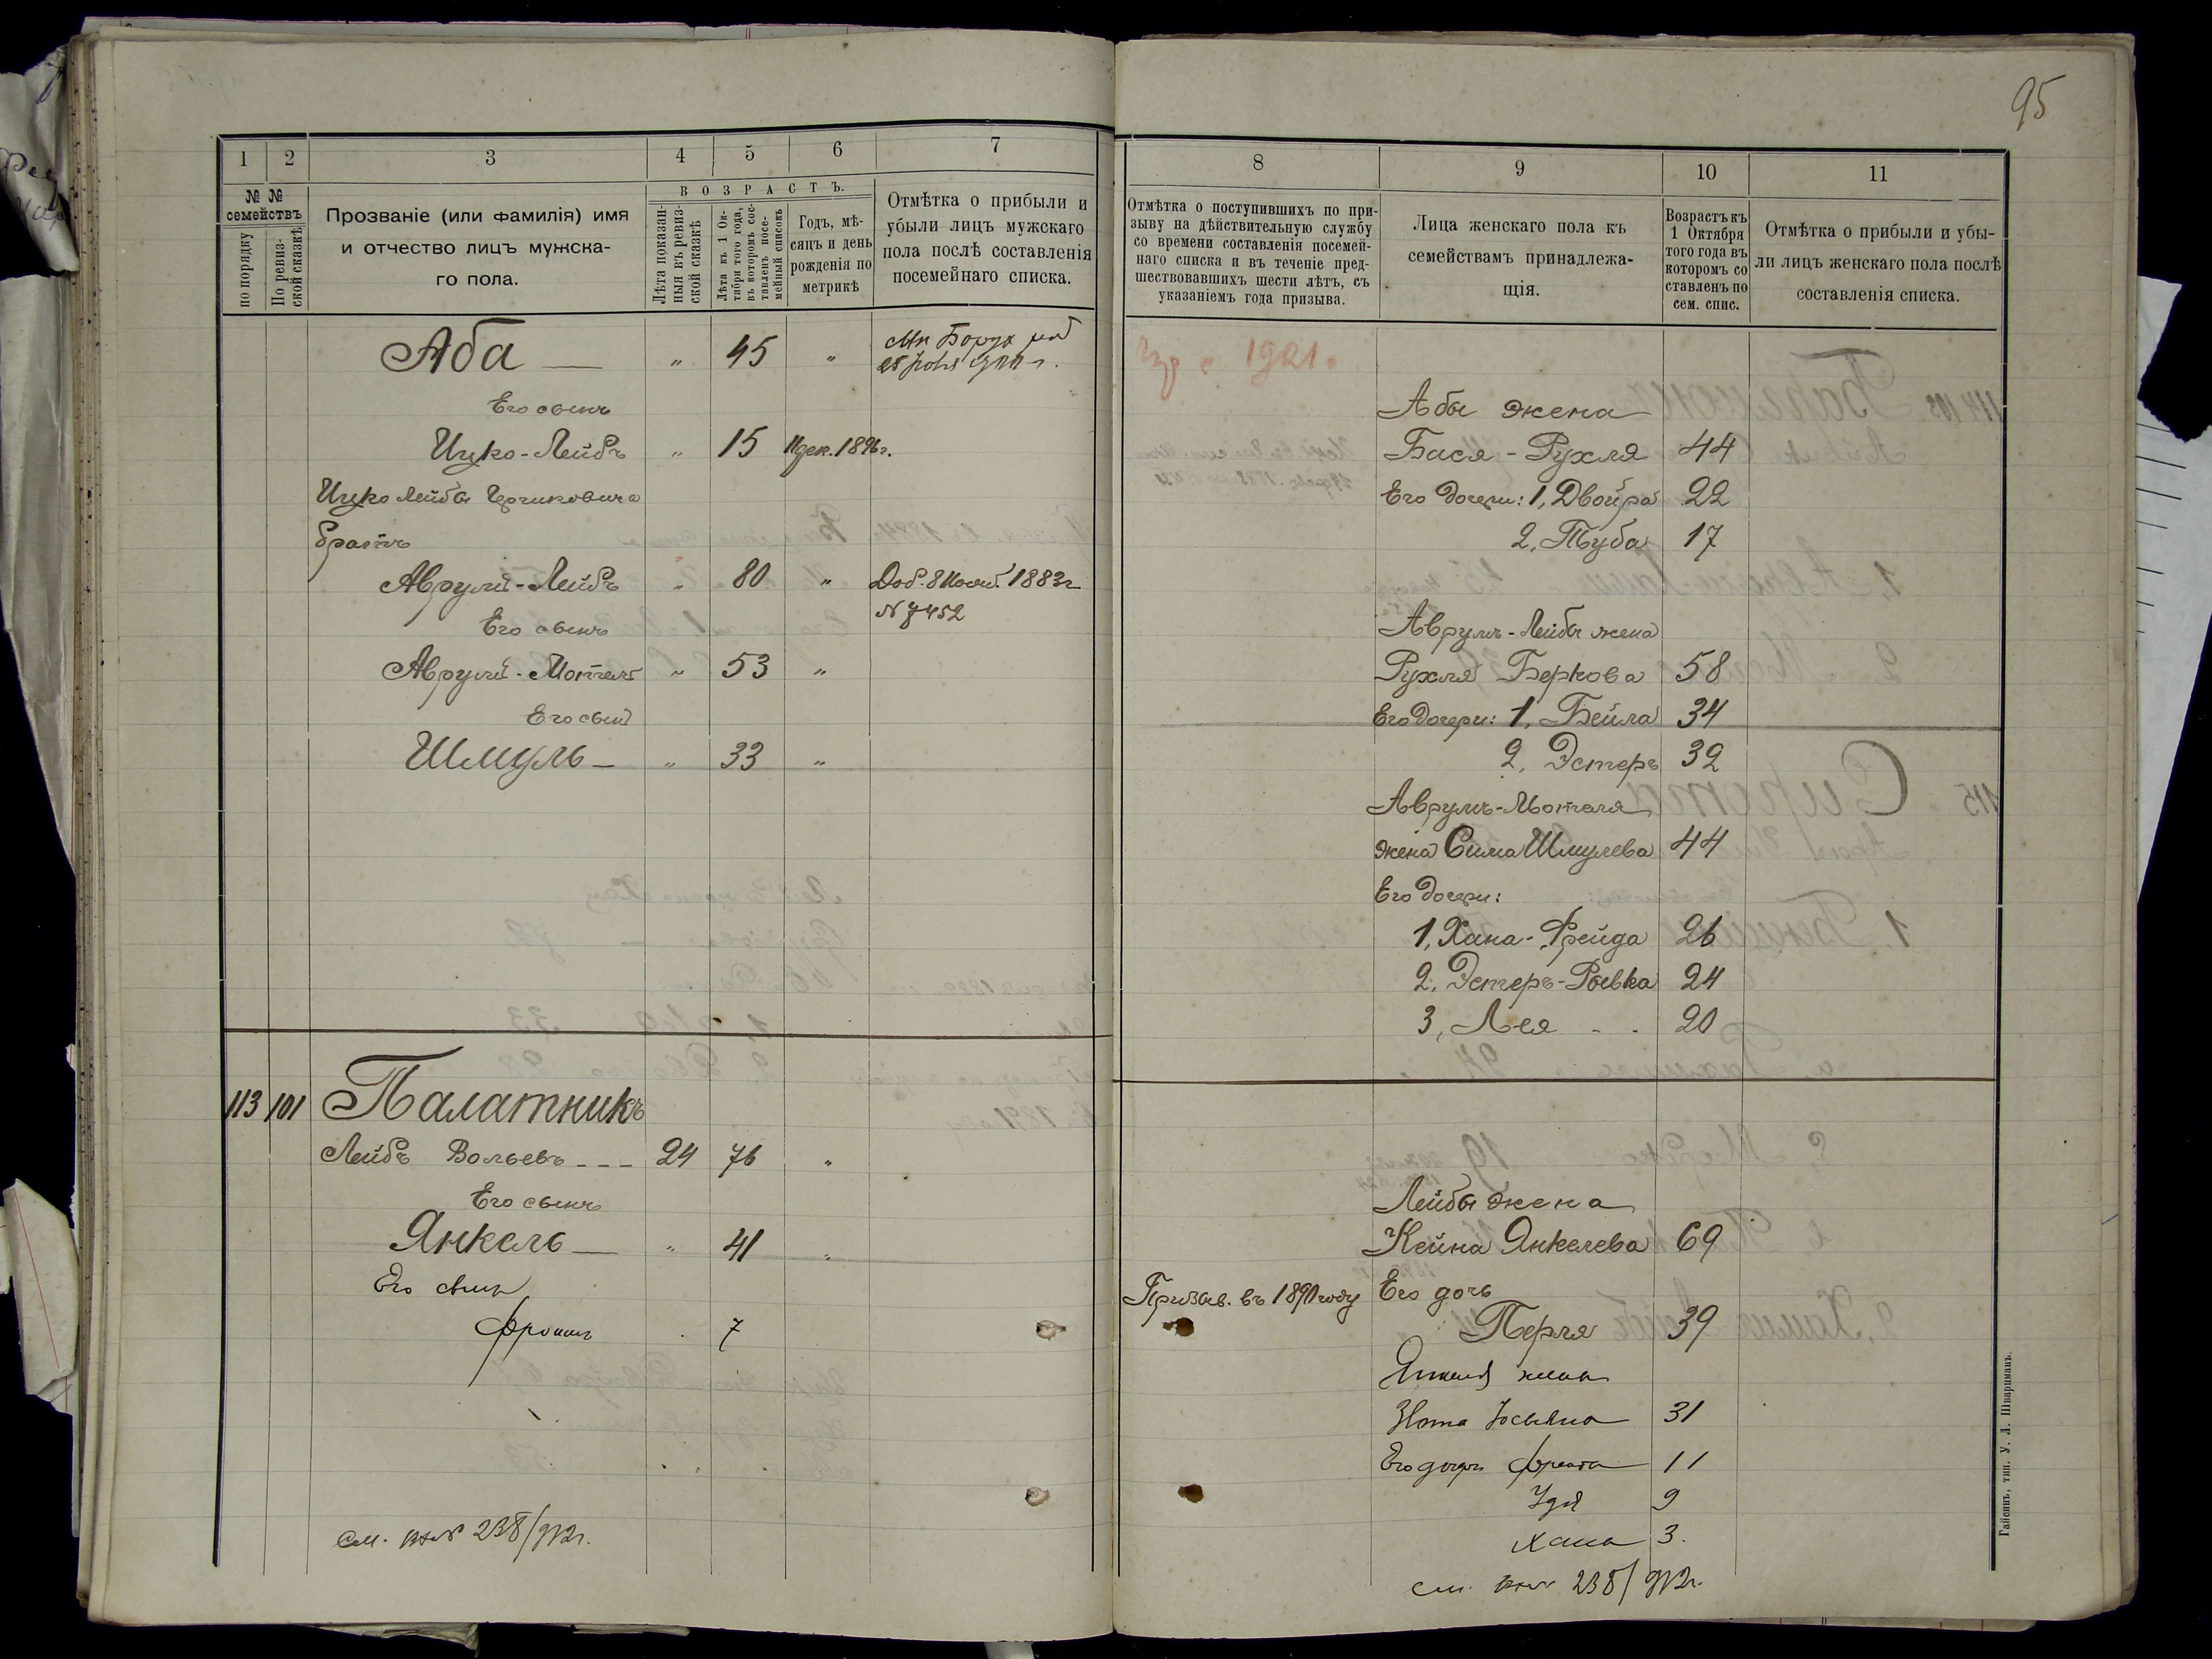 95
1 2 3 4 5 6 7
№ №
семействъ
по порядку
По ревиз-
ской сказкѣ
Прозваніе (или фамилія) имя
и отчество лицъ мужска-
го пола.
ВОЗРАСТЪ.
Лѣта показан-
ныя въ ревиз-
ской сказкѣ
Лѣта къ 1 Ок-
тября того года,
въ которомъ сос-
тавленъ посе-
мейный списокъ
Годъ, мѣ-
сяцъ и день
рожденія по
метрикѣ
Отмѣтка о прибыли и
убыли лицъ мужскаго
пола послѣ составленія
посемейнаго списка.
Аба — " 45 "
Его сынъ
Ицко-Лейбъ " 15 11 дек. 1896 г.
Ицко Лейбы
братъ
Аврумъ-Лейбъ " 80 " Доб. 8 Нояб. 1883 г
N 7452
Его сынъ
Аврумъ-Мотель " 53 "
Его сынъ
Шмуль — " 33 "
113 101 Палатникъ
Лейбъ Вольевъ - - - 24 76 "
Его сынъ
Янкель — " 41 "
Его сынъ
Фроимъ 7
См. 238/912г.
8 9 10 11
Отмѣтка о поступившихъ по при-
зыву на дѣйствительную службу
со времени составленія посемей-
наго списка и въ теченіе пред-
шествовавшихъ шести лѣтъ, съ
указаніемъ года призыва.
Лица женскаго пола къ
семействамъ принадлежа-
щія.
Возрастъ къ
1 Октября
того года въ
которомъ со
ставленъ по
сем. спис.
Отмѣтка о прибыли и убы-
ли лицъ женскаго пола послѣ
составленія списка.
1921
Абы жена
Бася-Рухля 44
Его дочери: 1, Двойра 22
2, Туба 17
Аврумъ-Лейбы жена
Рухля Беркова 58
Его дочери: 1, Бейла 34
2, Эстеръ 32
Аврумъ-Мотеля
жена Сима Шмулева 44
Его дочери:
1, Хана-Фрейда 26
2, Эстеръ-Ривка 24
3, Лея - - 20
Лейбы жена
Кейна Янкелева 69
Призыв. въ 1890 году Его дочь
Перля 39
Янкеля жена
31
Его дочери 11
Удя 9
Хана 3.
см. 238/912г.
Гайсинъ, тип. У. Л. Шварцманъ.